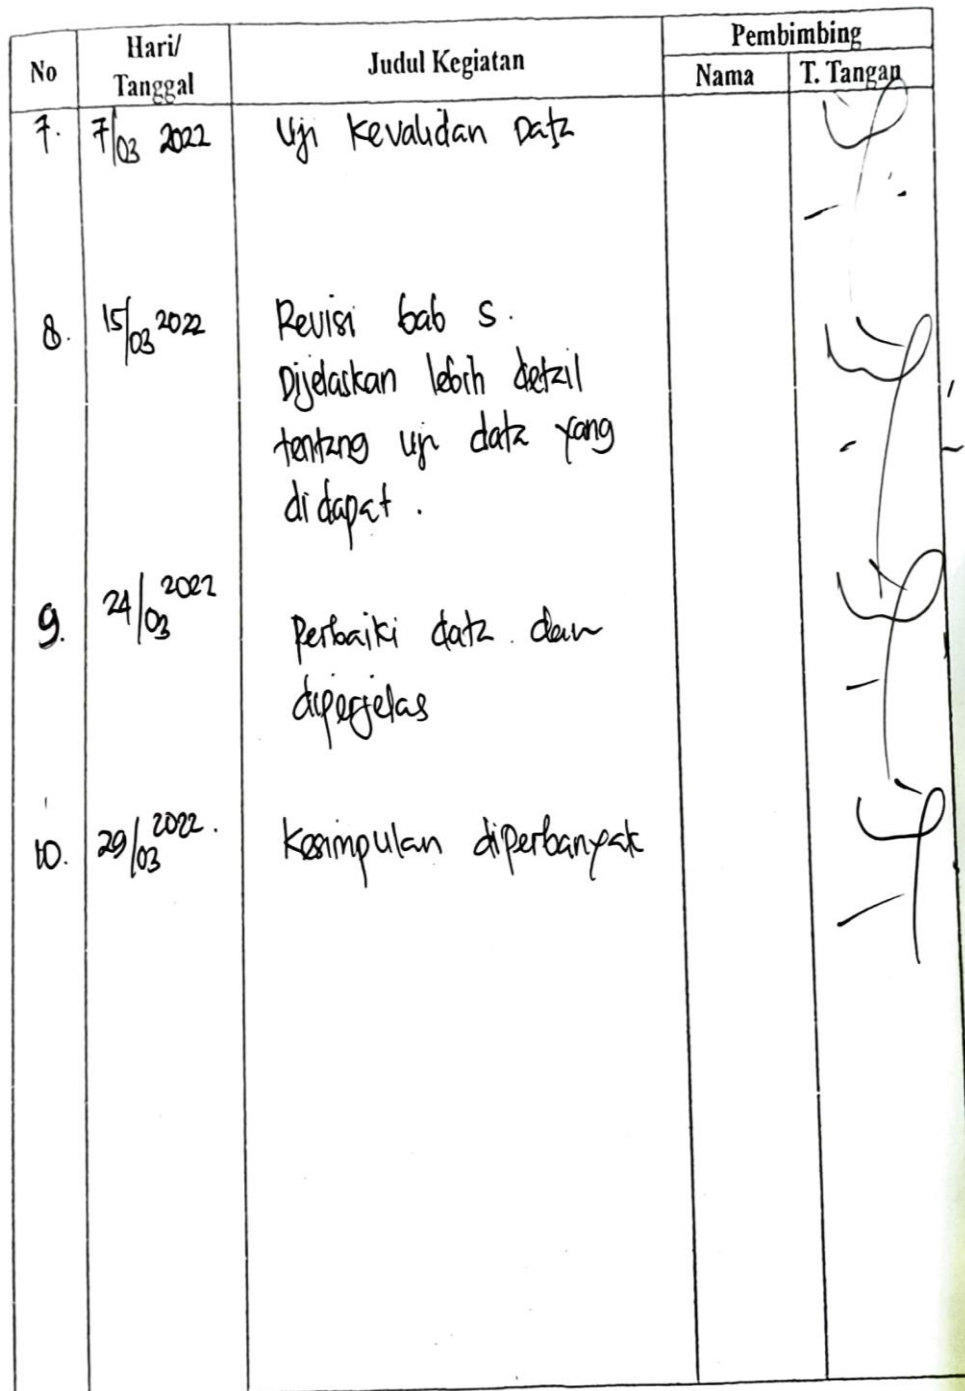 No Hari/ Tanggal Judul Kegiatan Pembimbing
Nama T. Tangan
7. 7/03 2022 Uji Kevalidan Data
8. 15/03 2022 Revisi bab 5.
Dijelaskan lebih detail
tentang uji data yang
didapat.
9. 24/03 2022 Perbaiki data dan
diperjelas
10. 29/03 2022. Kesimpulan diperbanyak